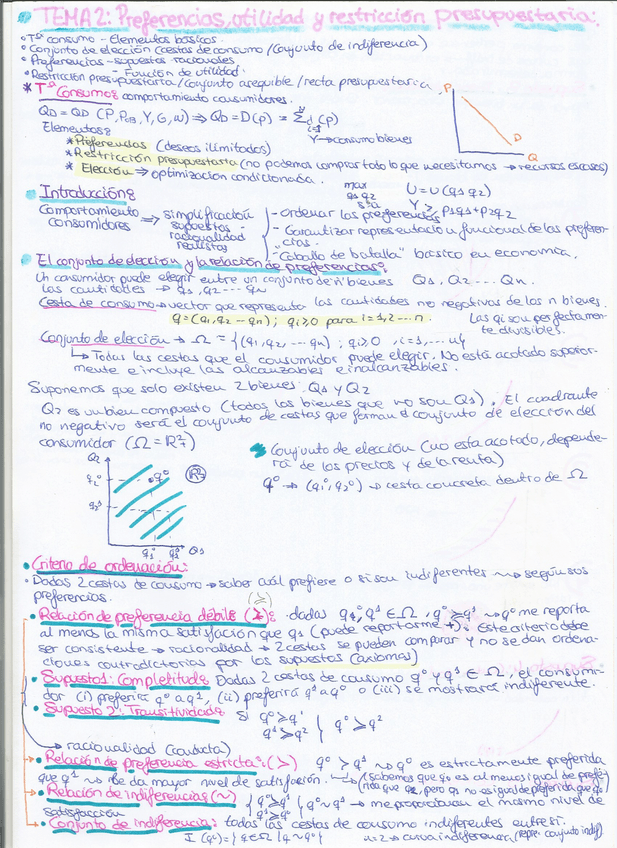 TEMA 2: Preferencias, utilidad y restricción presupuestaria:
• Tª consumo - Elementos básicos.
• Conjunto de elección (cestas de consumo / Conjunto de indiferencia)
• Preferencias - supuestos racionales
- Función de utilidad.
• Restricción presupuestaria / Conjunto asequible / recta presupuestaria
* Tª Consumo: comportamiento consumidores.
QD = QD (P, POB, Y, G, w) ⇒ QD = D(P) = Σ di
Y → consumo bienes
P
D
Q
Elementos:
* Preferencias (deseos ilimitados)
* Restricción presupuestaria (no podemos comprar todo lo que necesitamos → recursos escasos)
* Elección ⇒ optimización condicionada.
max U = U (q1 q2)
q1 q2
s.a Y ≥ p1q1 + p2q2
• Introducción:
Comportamiento consumidores ⇒ simplificación supuestos - racionalidad realistas
- Ordenar las preferencias
- Garantizar representación funcional de las preferencias.
- "Caballo de batalla" básico en economía.
• El conjunto de elección y la relación de preferencias:
Un consumidor puede elegir entre un conjunto de "n" bienes Q1, Q2 ... Qn.
Las cantidades → q1, q2 ... qn
Cesta de consumo → vector que representa las cantidades no negativas de los n bienes.
q = (q1, q2 ... qn); qi ≥ 0 para i = 1, 2 ... n.
Las qi son perfectamente divisibles.
Conjunto de elección → Ω = {(q1, q2 ... qn); qi ≥ 0, i = 1, ... n}
↳ Todas las cestas que el consumidor puede elegir. No está acotado superiormente e incluye las alcanzables e inalcanzables.
Suponemos que solo existen 2 bienes: Q1 y Q2
Q2 es un bien compuesto (todos los bienes que no son Q1). El cuadrante
no negativo será el conjunto de cestas que forman el conjunto de elección del
consumidor (Ω = R²₊)
Conjunto de elección (no esta acotado, dependerá de los precios y de la renta)
q⁰ → (q1⁰, q2⁰) → cesta concreta dentro de Ω
Q2
q2⁰
q⁰
R²₊
q2¹
q1¹ q1⁰ Q1
• Criterio de ordenación:
• Dadas 2 cestas de consumo → saber cuál prefiere o si son indiferentes → según sus
preferencias.
(≥)
• Relación de preferencia débil: (≿): dadas q⁰, q¹ ∈ Ω, q⁰ ≿ q¹ → q⁰ me reporta
al menos la misma satisfacción que q1 (puede reportarme +). Este criterio debe
ser consistente → racionalidad → 2 cestas se pueden comparar y no se dan ordenaciones
contradictorias por los supuestos (axiomas)
• Supuesto 1: Completitud: Dadas 2 cestas de consumo q⁰ y q¹ ∈ Ω, el consumidor
(i) preferirá q⁰ a q¹, (ii) preferirá q¹ a q⁰ o (iii) se mostrará indiferente.
• Supuesto 2: Transitividad: Si q⁰ ≿ q¹
q¹ ≿ q² } q⁰ ≿ q²
→ racionalidad (conducta)
• Relación de preferencia estricta: (≻) q⁰ ≻ q¹ → q⁰ es estrictamente preferida
que q¹ → le da mayor nivel de satisfacción. → (sabemos que q⁰ es al menos igual de preferida que
• Relación de indiferencia: (~) { q⁰ ≿ q¹ q¹ ≿ q⁰ } q⁰ ~ q¹ → me proporcionan el mismo nivel de
satisfacción
• Conjunto de indiferencia: todas las cestas de consumo indiferentes entre sí.
I (q⁰) = { q ∈ Ω | q ~ q⁰ } n = 2 → curva indiferencia (repre. conjunto indif).